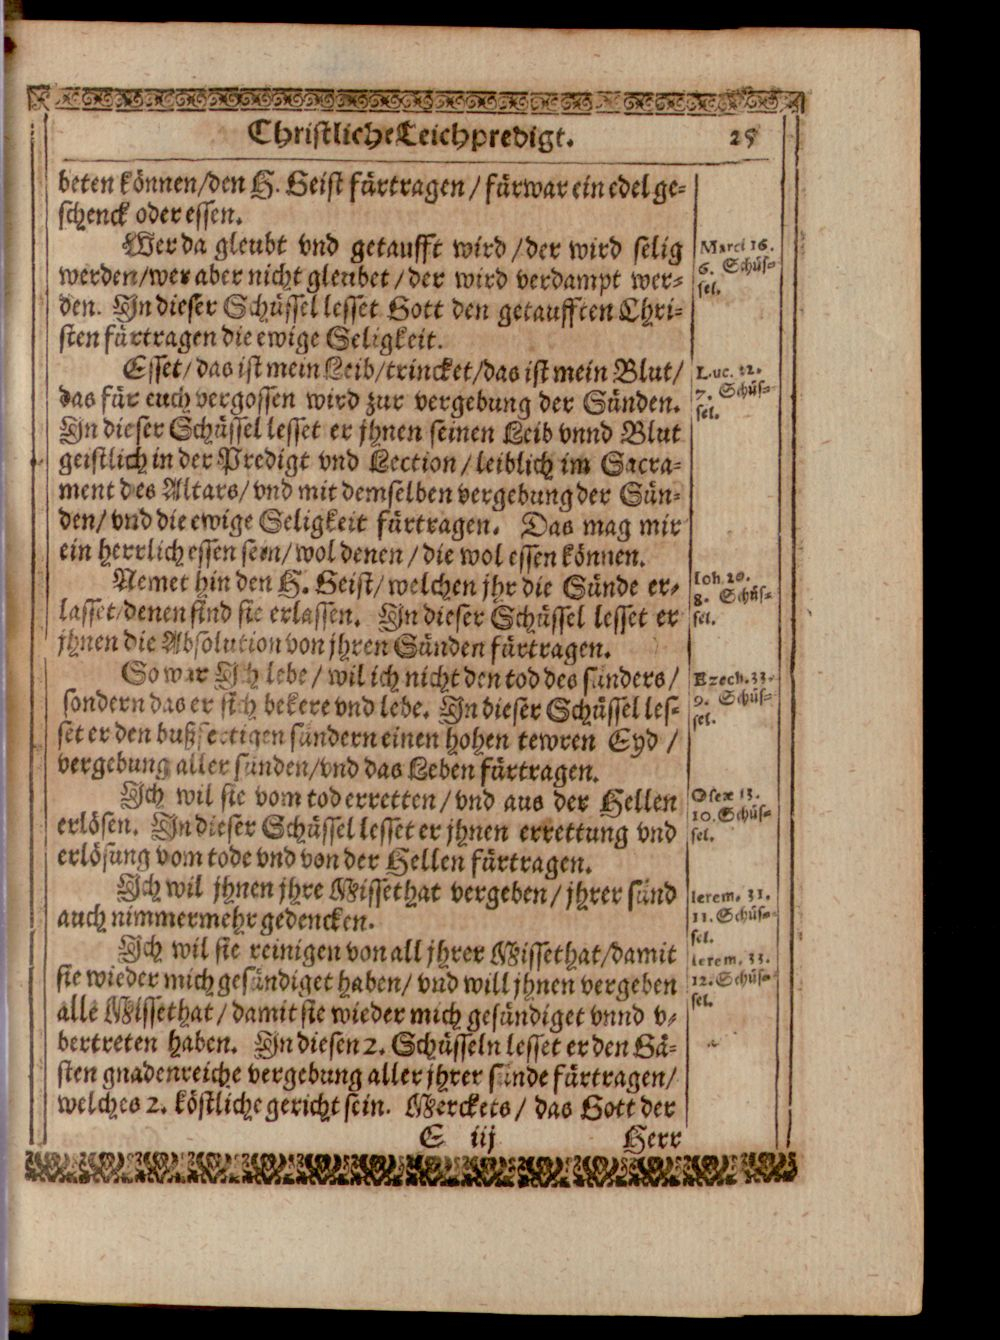 Christliche Leichpredigt. 25
beten können/den H. Geist fürtragen / fürwar ein edel ge-
schenck oder essen.
Wer da gleubt vnd getaufft wird /der wird selig
werden/wer aber nicht gleubet /der wird verdampt wer-
den. In dieser Schüssel lesset Gott den getaufften Chri-
sten fürtragen die ewige Seligkeit.
Marci 16.
6. Schüs-
sel.
Esset/ das ist mein Leib/trincket/das ist mein Blut/
das für euch vergossen wird zur vergebung der Sünden.
In dieser Schüssel lesset er jhnen seinen Leib vnnd Blut
geistlich in der Predigt vnd Lection / leiblich im Sacra-
ment des Altars/ vnd mit demselben vergebung der Sün-
den/ vnd die ewige Seligkeit fürtragen. Das mag mir
ein herrlich essen sein/ wol denen / die wol essen können.
Luc. 22.
7. Schüs-
sel.
Nemet hin den H. Geist/ welchen jhr die Sünde er-
lasset/denen sind sie erlassen. In dieser Schüssel lesset er
jhnen die Absolution von jhren Sünden fürtragen.
Ioh. 20.
8. Schüs-
sel.
So war Ich lebe / wil ich nicht den tod des sünders/
sondern das er sich bekere vnd lebe. In dieser Schüssel les-
set er den bußfertigen sündern einen hohen tewren Eyd /
vergebung aller sünden/vnd das Leben fürtragen.
Ezech. 33.
9. Schüs-
sel.
Ich wil sie vom tod erretten / vnd aus der Hellen
erlösen. In dieser Schüssel lesset er jhnen errettung vnd
erlösung vom tode vnd von der Hellen fürtragen.
Oseæ 13.
10. Schüs-
sel.
Ich wil jhnen jhre Missethat vergeben / jhrer sünd
auch nimmermehr gedencken.
Ierem. 31.
11. Schüs-
sel.
Ich wil sie reinigen von all jhrer Missethat/damit
sie wieder mich gesündiget haben/ vnd will jhnen vergeben
alle Missethat / damit sie wieder mich gesündiget vnnd v-
bertreten haben. In diesen 2. Schüsseln lesset er den Gä-
sten gnadenreiche vergebung aller jhrer sünde fürtragen/
welches 2. köstliche gericht sein. Merckets / das Gott der
Ierem. 33.
12. Schüs-
sel.
E iij Herr